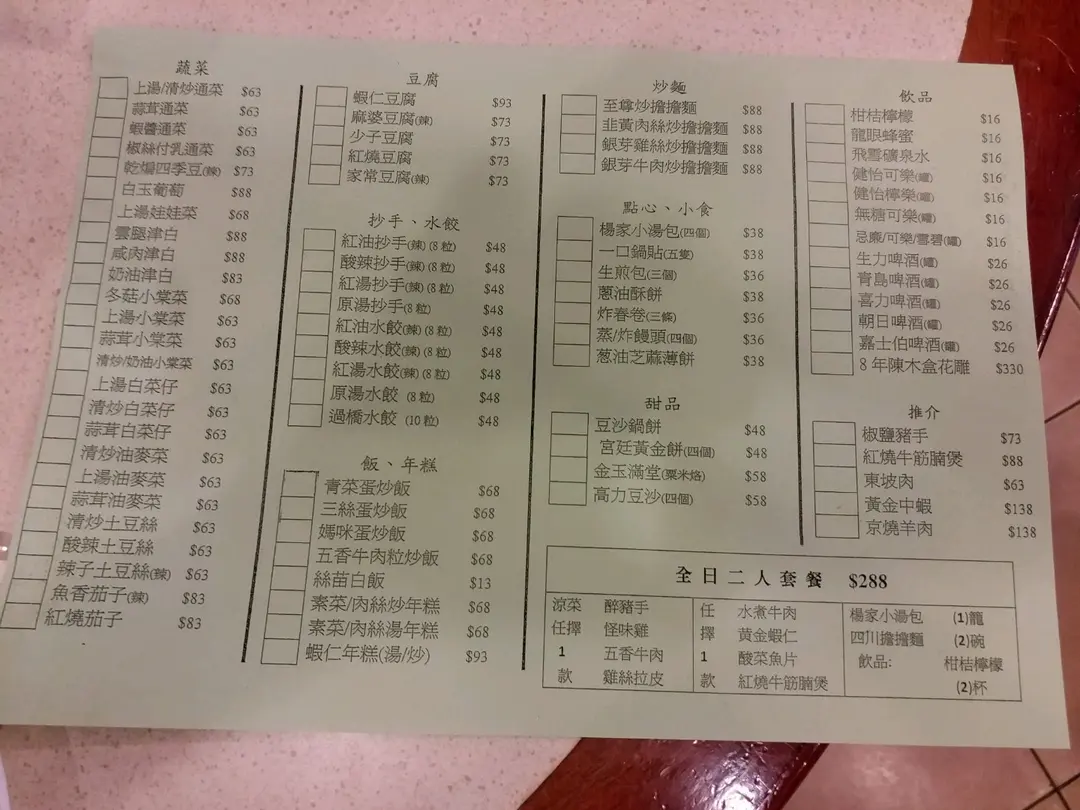 蔬菜
上湯/清炒通菜 $63
蒜茸通菜 $63
蝦醬通菜 $63
椒絲付乳通菜 $63
乾煸四季豆(辣) $73
白玉葡萄 $88
上湯娃娃菜 $68
雲腿津白 $88
咸肉津白 $88
奶油津白 $83
冬菇小棠菜 $68
上湯小棠菜 $63
蒜茸小棠菜 $63
清炒/奶油小棠菜 $63
上湯白菜仔 $63
清炒白菜仔 $63
蒜茸白菜仔 $63
清炒油麥菜 $63
上湯油麥菜 $63
蒜茸油麥菜 $63
清炒土豆絲 $63
酸辣土豆絲 $63
辣子土豆絲(辣) $63
魚香茄子(辣) $83
紅燒茄子 $83
豆腐
蝦仁豆腐 $93
麻婆豆腐(辣) $73
少子豆腐 $73
紅燒豆腐 $73
家常豆腐(辣) $73
抄手、水餃
紅油抄手(辣)(8粒) $48
酸辣抄手(辣)(8粒) $48
紅湯抄手(辣)(8粒) $48
原湯抄手(8粒) $48
紅油水餃(辣)(8粒) $48
酸辣水餃(辣)(8粒) $48
紅湯水餃(辣)(8粒) $48
原湯水餃 (8粒) $48
過橋水餃 (10粒) $48
飯、年糕
青菜蛋炒飯 $68
三絲蛋炒飯 $68
媽咪蛋炒飯 $68
五香牛肉粒炒飯 $68
絲苗白飯 $13
素菜/肉絲炒年糕 $68
素菜/肉絲湯年糕 $68
蝦仁年糕(湯/炒) $93
炒麵
至尊炒擔擔麵 $88
韭黃肉絲炒擔擔麵 $88
銀芽雞絲炒擔擔麵 $88
銀芽牛肉炒擔擔麵 $88
點心、小食
楊家小湯包(四個) $38
一口鍋貼(五隻) $38
生煎包(三個) $36
蔥油酥餅 $38
炸春卷(三條) $36
蒸/炸饅頭(四個) $36
葱油芝蔴薄餅 $38
甜品
豆沙鍋餅 $48
宮廷黃金餅(四個) $48
金玉滿堂(粟米烙) $58
高力豆沙(四個) $58
飲品
柑桔檸檬 $16
龍眼蜂蜜 $16
飛雪礦泉水 $16
健怡可樂(罐) $16
健怡檸樂(罐) $16
無糖可樂(罐) $16
忌廉/可樂/雪碧(罐) $16
生力啤酒(罐) $26
青島啤酒(罐) $26
喜力啤酒(罐) $26
朝日啤酒(罐) $26
嘉士伯啤酒(罐) $26
8年陳木盒花雕 $330
推介
椒鹽豬手 $73
紅燒牛筋腩煲 $88
東坡肉 $63
黃金中蝦 $138
京燒羊肉 $138
全日二人套餐 $288
涼菜 醉豬手
任擇 怪味雞
1 五香牛肉
款 雞絲拉皮
任 水煮牛肉
擇 黄金蝦仁
1 酸菜魚片
款 紅燒牛筋腩煲
楊家小湯包 (1)籠
四川擔擔麵 (2)碗
飲品: 柑桔檸檬
(2)杯